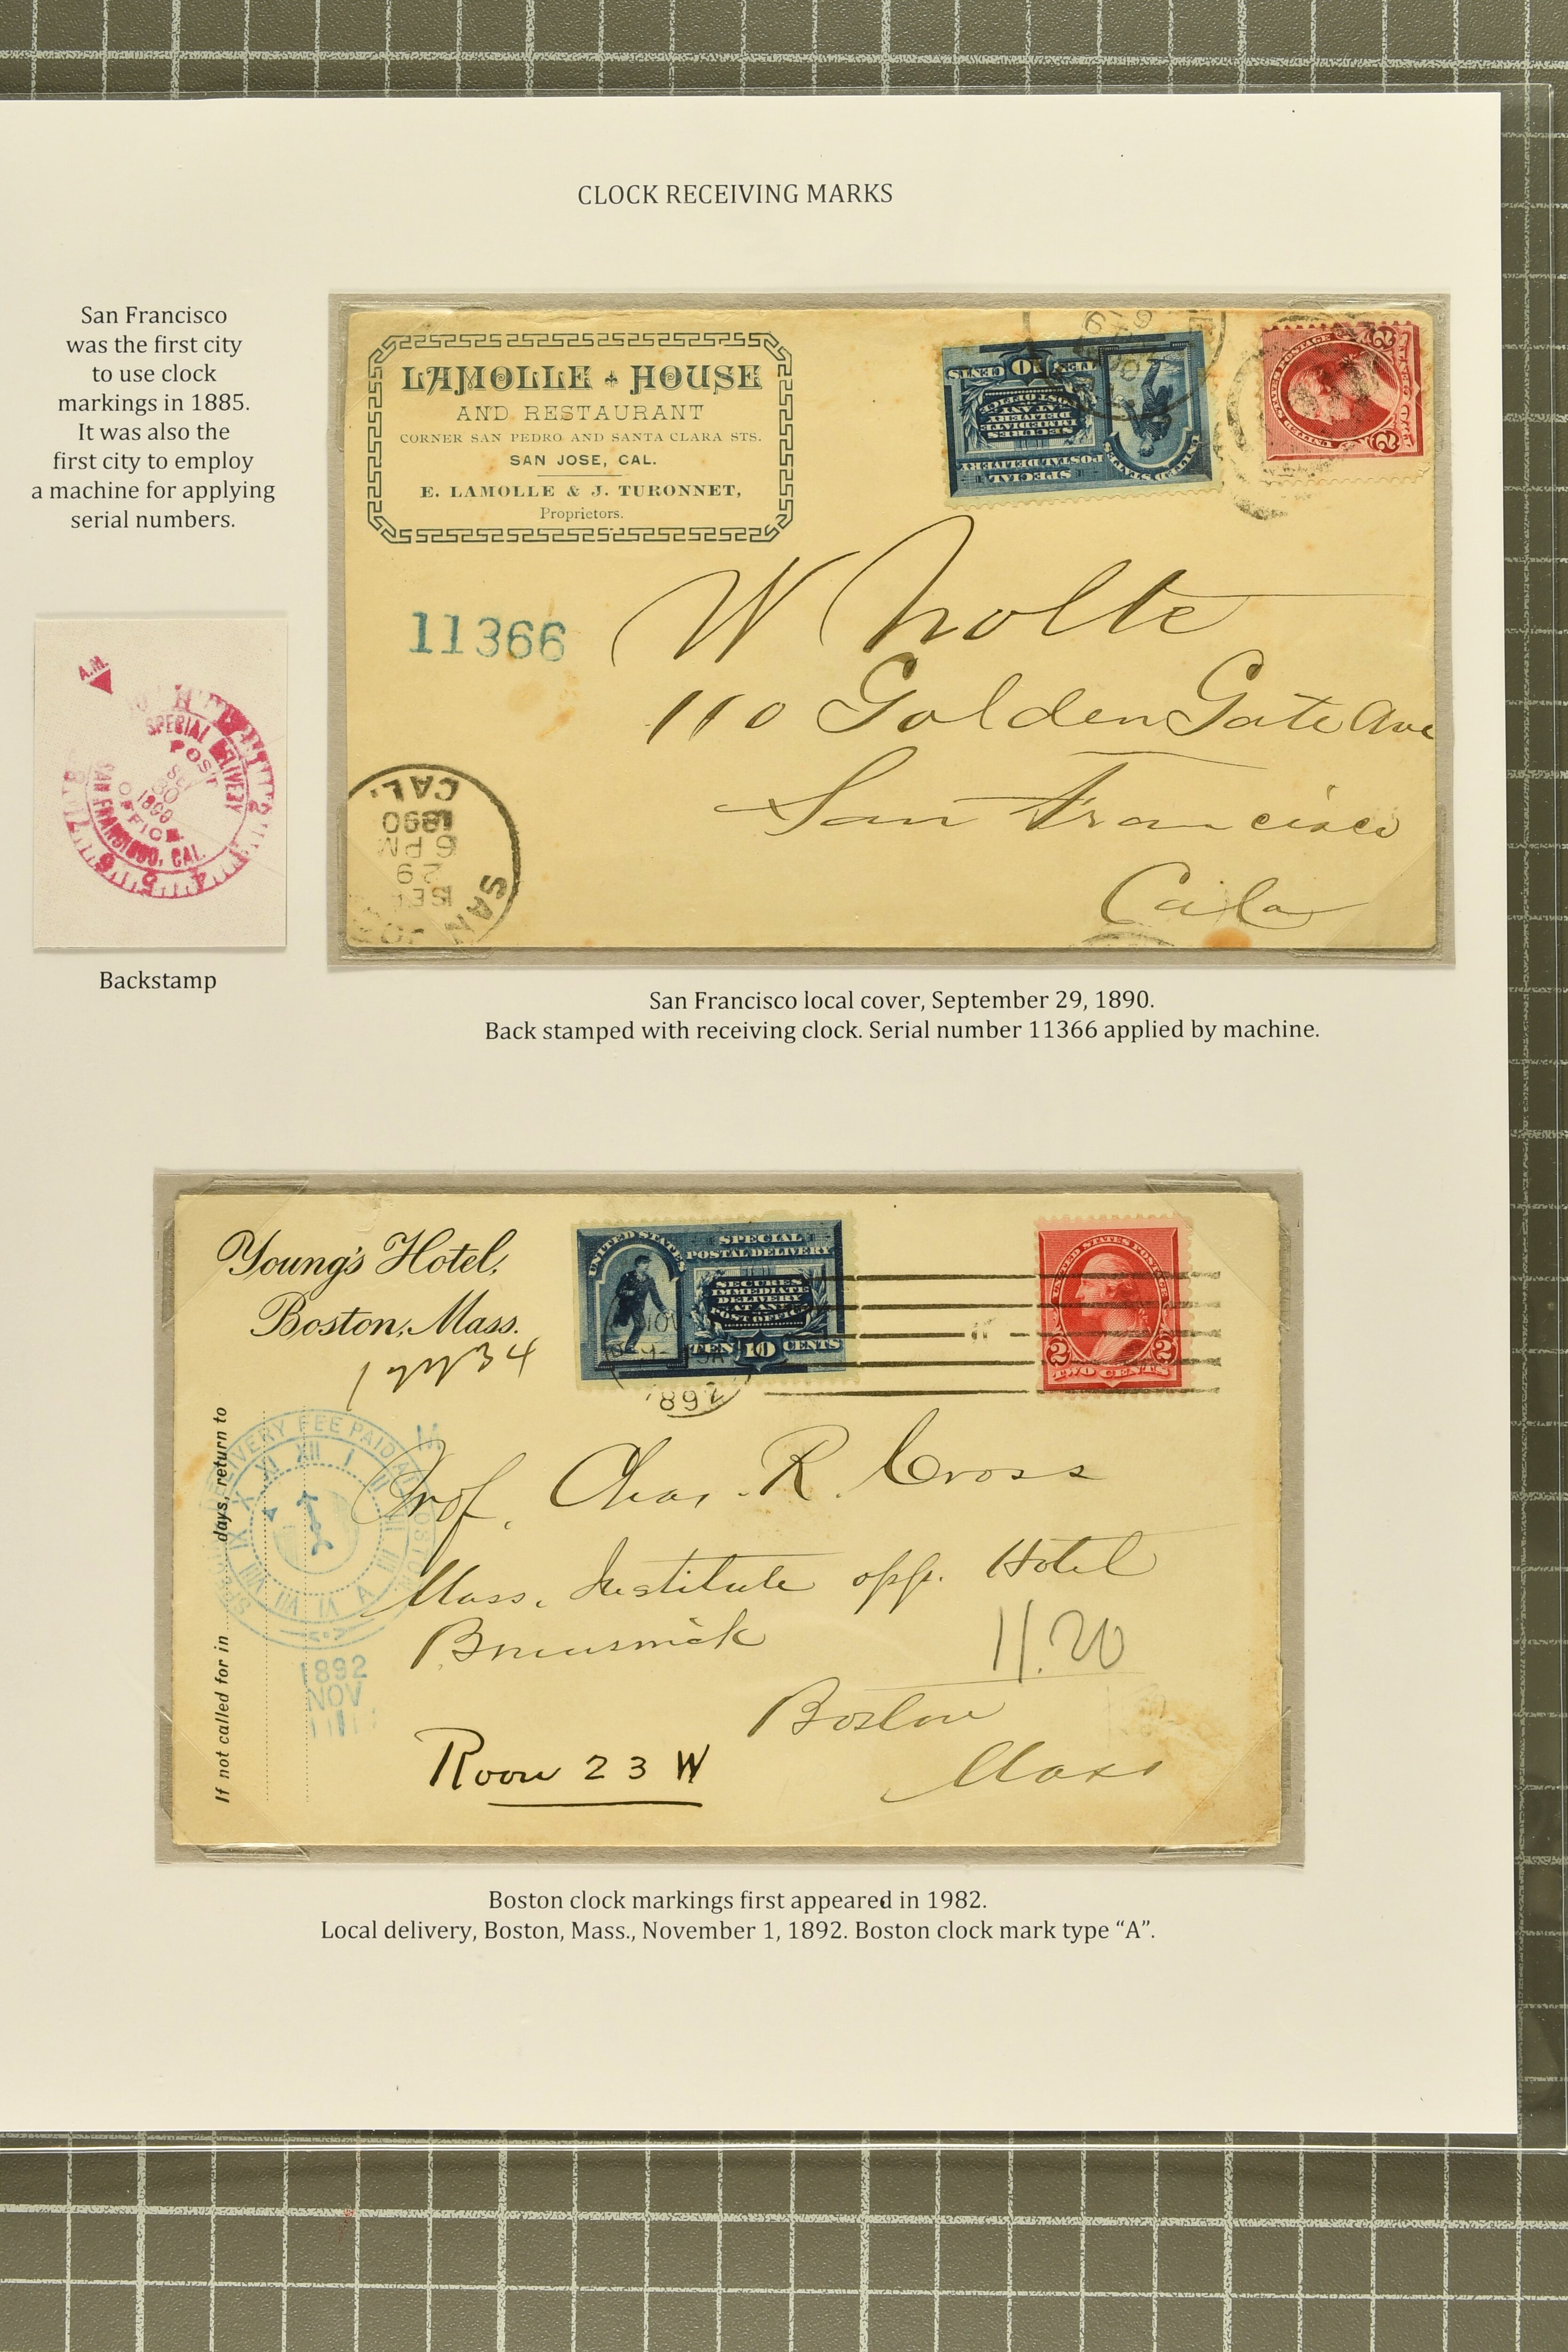 CLOCK RECEIVING MARKS
San Francisco
was the first city
to use clock
markings in 1885.
It was also the
first city to employ
a machine for applying
serial numbers.
LAMOLLE HOUSE
AND RESTAURANT
CORNER SAN PEDRO AND SANTA CLARA STS.
SAN JOSE, CAL.
E. LAMOLLE & J. TURONNET,
Proprietors.
SPECIAL
POSTAL DELIVERY
UNITED STATES
SECURES
IMMEDIATE
DELIVERY
AT ANY
POST OFFICE
TEN 10 CENTS
UNITED STATES POSTAGE
2 2
11366
W Nolte
110 Golden Gate Ave
San Francisco
Cala
SAN
SEP
29
6 PM
1890
CAL.
A.M.
SPECIAL DELIVERY
POST
SEP
30
1890
OFFICE
SAN FRANCISCO, CAL.
2
4
5
6
7
8
Backstamp
San Francisco local cover, September 29, 1890.
Back stamped with receiving clock. Serial number 11366 applied by machine.
Young's Hotel,
Boston, Mass.
UNITED STATES
SPECIAL
POSTAL DELIVERY
SECURES
IMMEDIATE
DELIVERY
AT ANY
POST OFFICE
TEN 10 CENTS
NOV
1892
UNITED STATES POSTAGE
2 2
TWO CENTS
If not called for in days, return to
DELIVERY FEE PAID AT BOSTON
XII I II III IIII V VI VII VIII IX X XI
1892
NOV
Prof. Chas. R. Cross
Mass. Institute opp. Hotel
Brunswick
11.20
Boston
Mass
Room 23 W
Boston clock markings first appeared in 1982.
Local delivery, Boston, Mass., November 1, 1892. Boston clock mark type “A”.